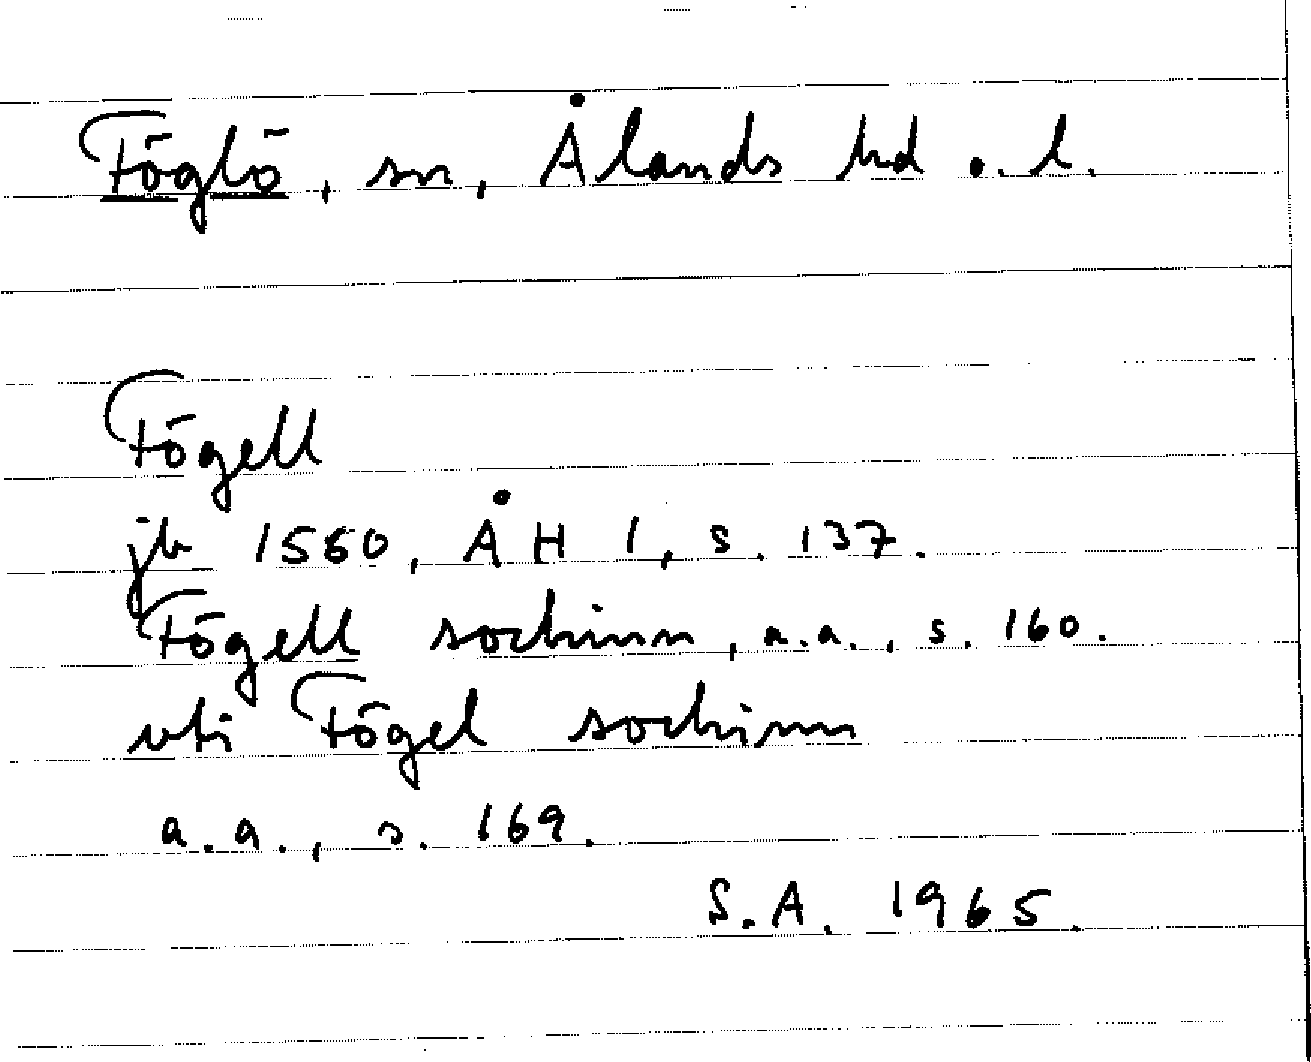 Föglö, sn, Ålands hd o. l.
Fögell
jb 1550, ÅH 1, s. 137.
Fögell sochinn, a.a., s. 160.
vti Fögel sochinn
a.a., s. 169.
S.A. 1965.